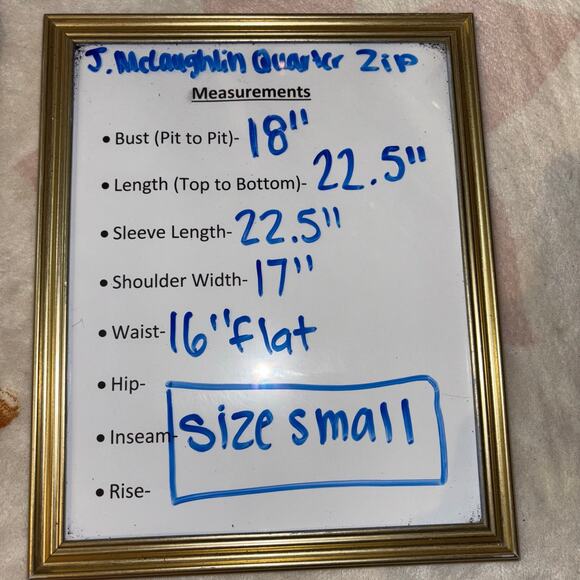 J. McLaughlin Quarter Zip
Measurements
• Bust (Pit to Pit)- 18"
• Length (Top to Bottom)- 22.5"
• Sleeve Length- 22.5"
• Shoulder Width- 17"
• Waist- 16" flat
• Hip-
• Inseam- size small
• Rise-